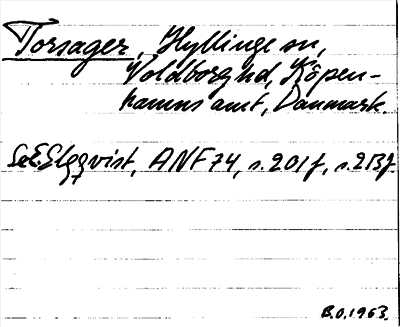 Torsager, Hyllinge sn,
Voldborg hd, Köpen-
hamns amt, Danmark.
Se E. Elgqvist, ANF 74, s. 201 f, s. 213 f.
B.O. 1963.